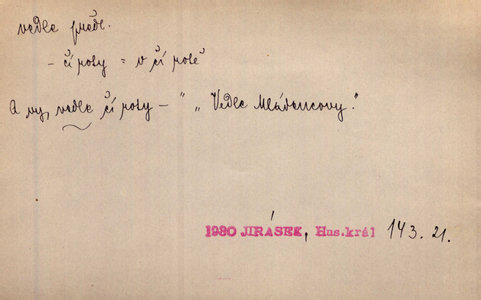 vedle předl.
– čí roty = v čí rotě
A vy, vedle čí roty – " „Vedle Mládencovy."
1930 JIRÁSEK, Hus.král 143. 21.